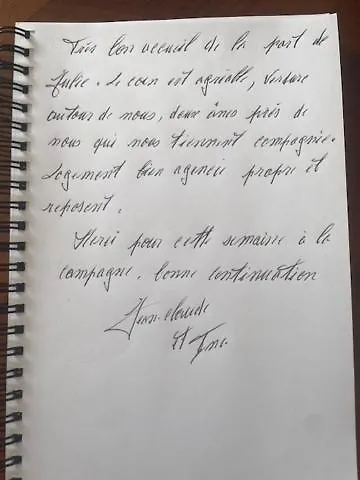 Très bon accueil de la part de
Julie. Le coin est agréable, verdure
autour de nous, deux ânes près de
nous qui nous tiennent compagnie.
Logement bien agencé propre et
reposent.
Merci pour cette semaine à la
campagne. bonne continuation
Jean-claude
et